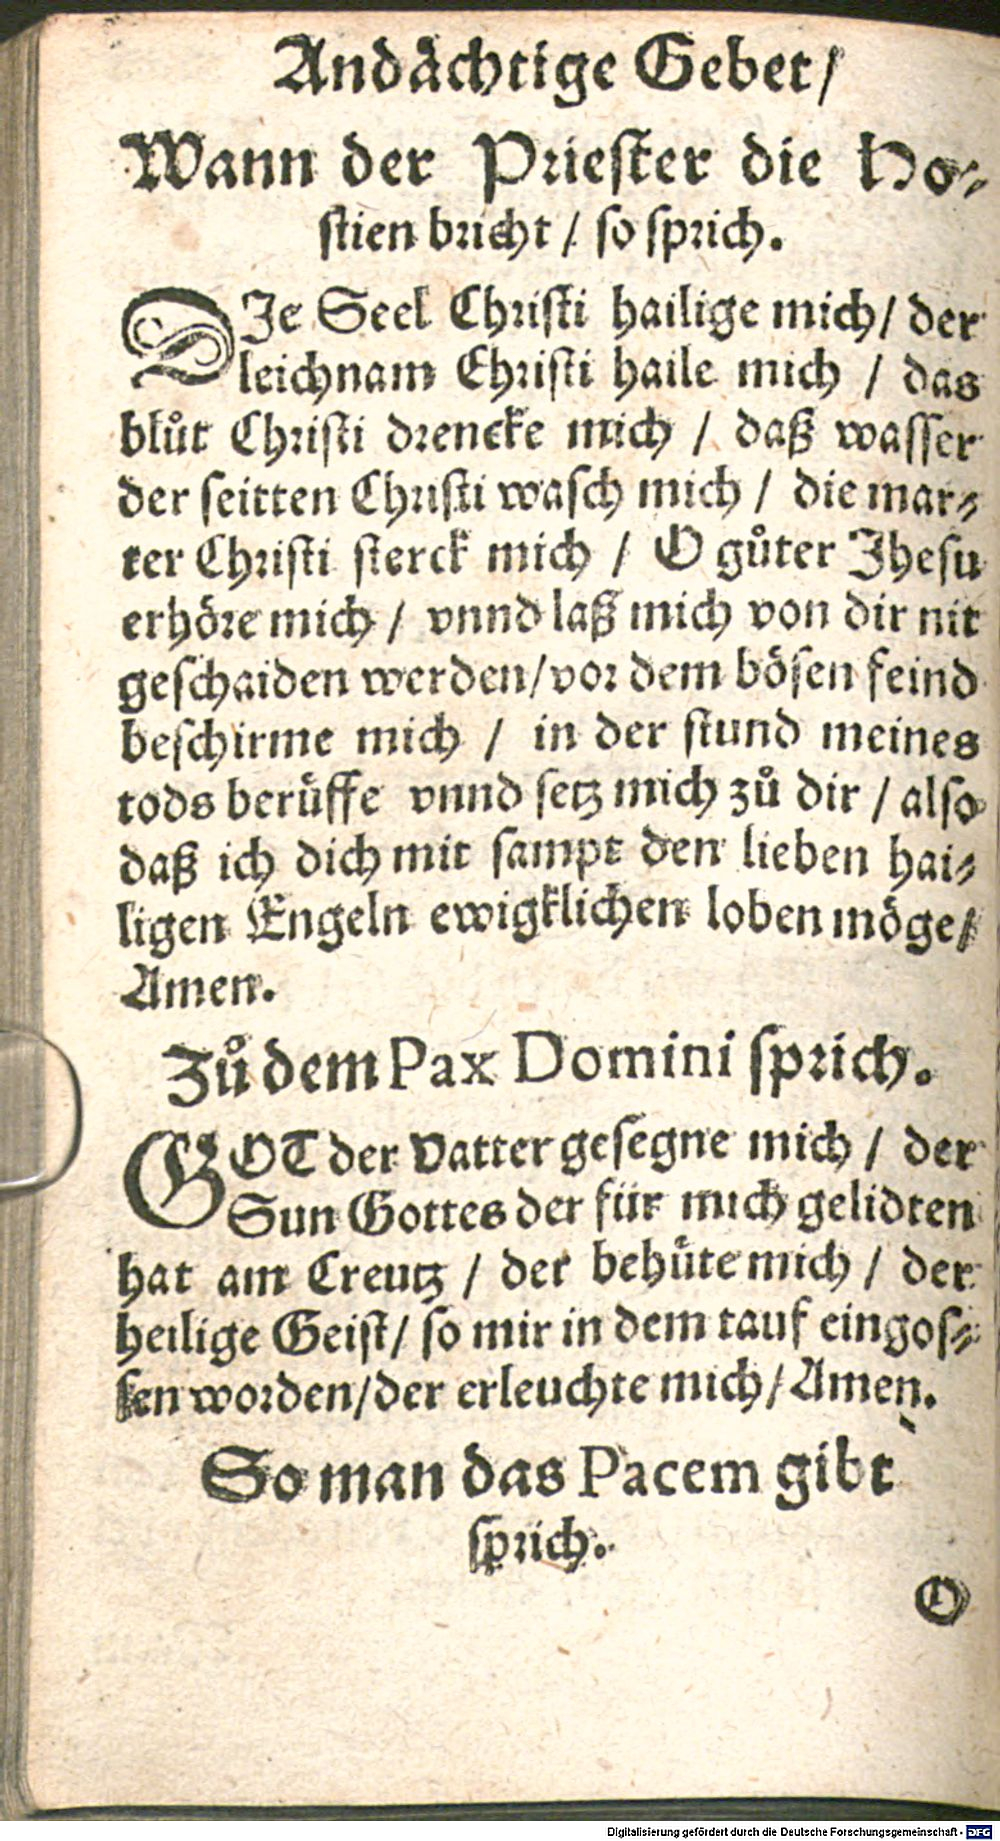 Andächtige Gebet/
Wann der Priester die Ho⸗
stien bricht / so sprich.
DJe Seel Christi hailige mich/ der
leichnam Christi haile mich / das
blůt Christi drencke mich / daß wasser
der seitten Christi wasch mich / die mar⸗
ter Christi sterck mich / O gůter Jhesu
erhöre mich / vnnd laß mich von dir nit
geschaiden werden/vor dem bösen feind
beschirme mich / in der stund meines
tods berüffe vnnd setz mich zů dir / also
daß ich dich mit sampt den lieben hai⸗
ligen Engeln ewigklichen loben möge/
Amen.
Zů dem Pax Domini sprich.
GOT der Vatter gesegne mich / der
Sun Gottes der für mich gelidten
hat am Creutz / der behüte mich / der
heilige Geist/ so mir in dem tauf eingos⸗
sen worden/der erleuchte mich/Amen.
So man das Pacem gibt
sprich.
O
Digitalisierung gefördert durch die Deutsche Forschungsgemeinschaft - DFG